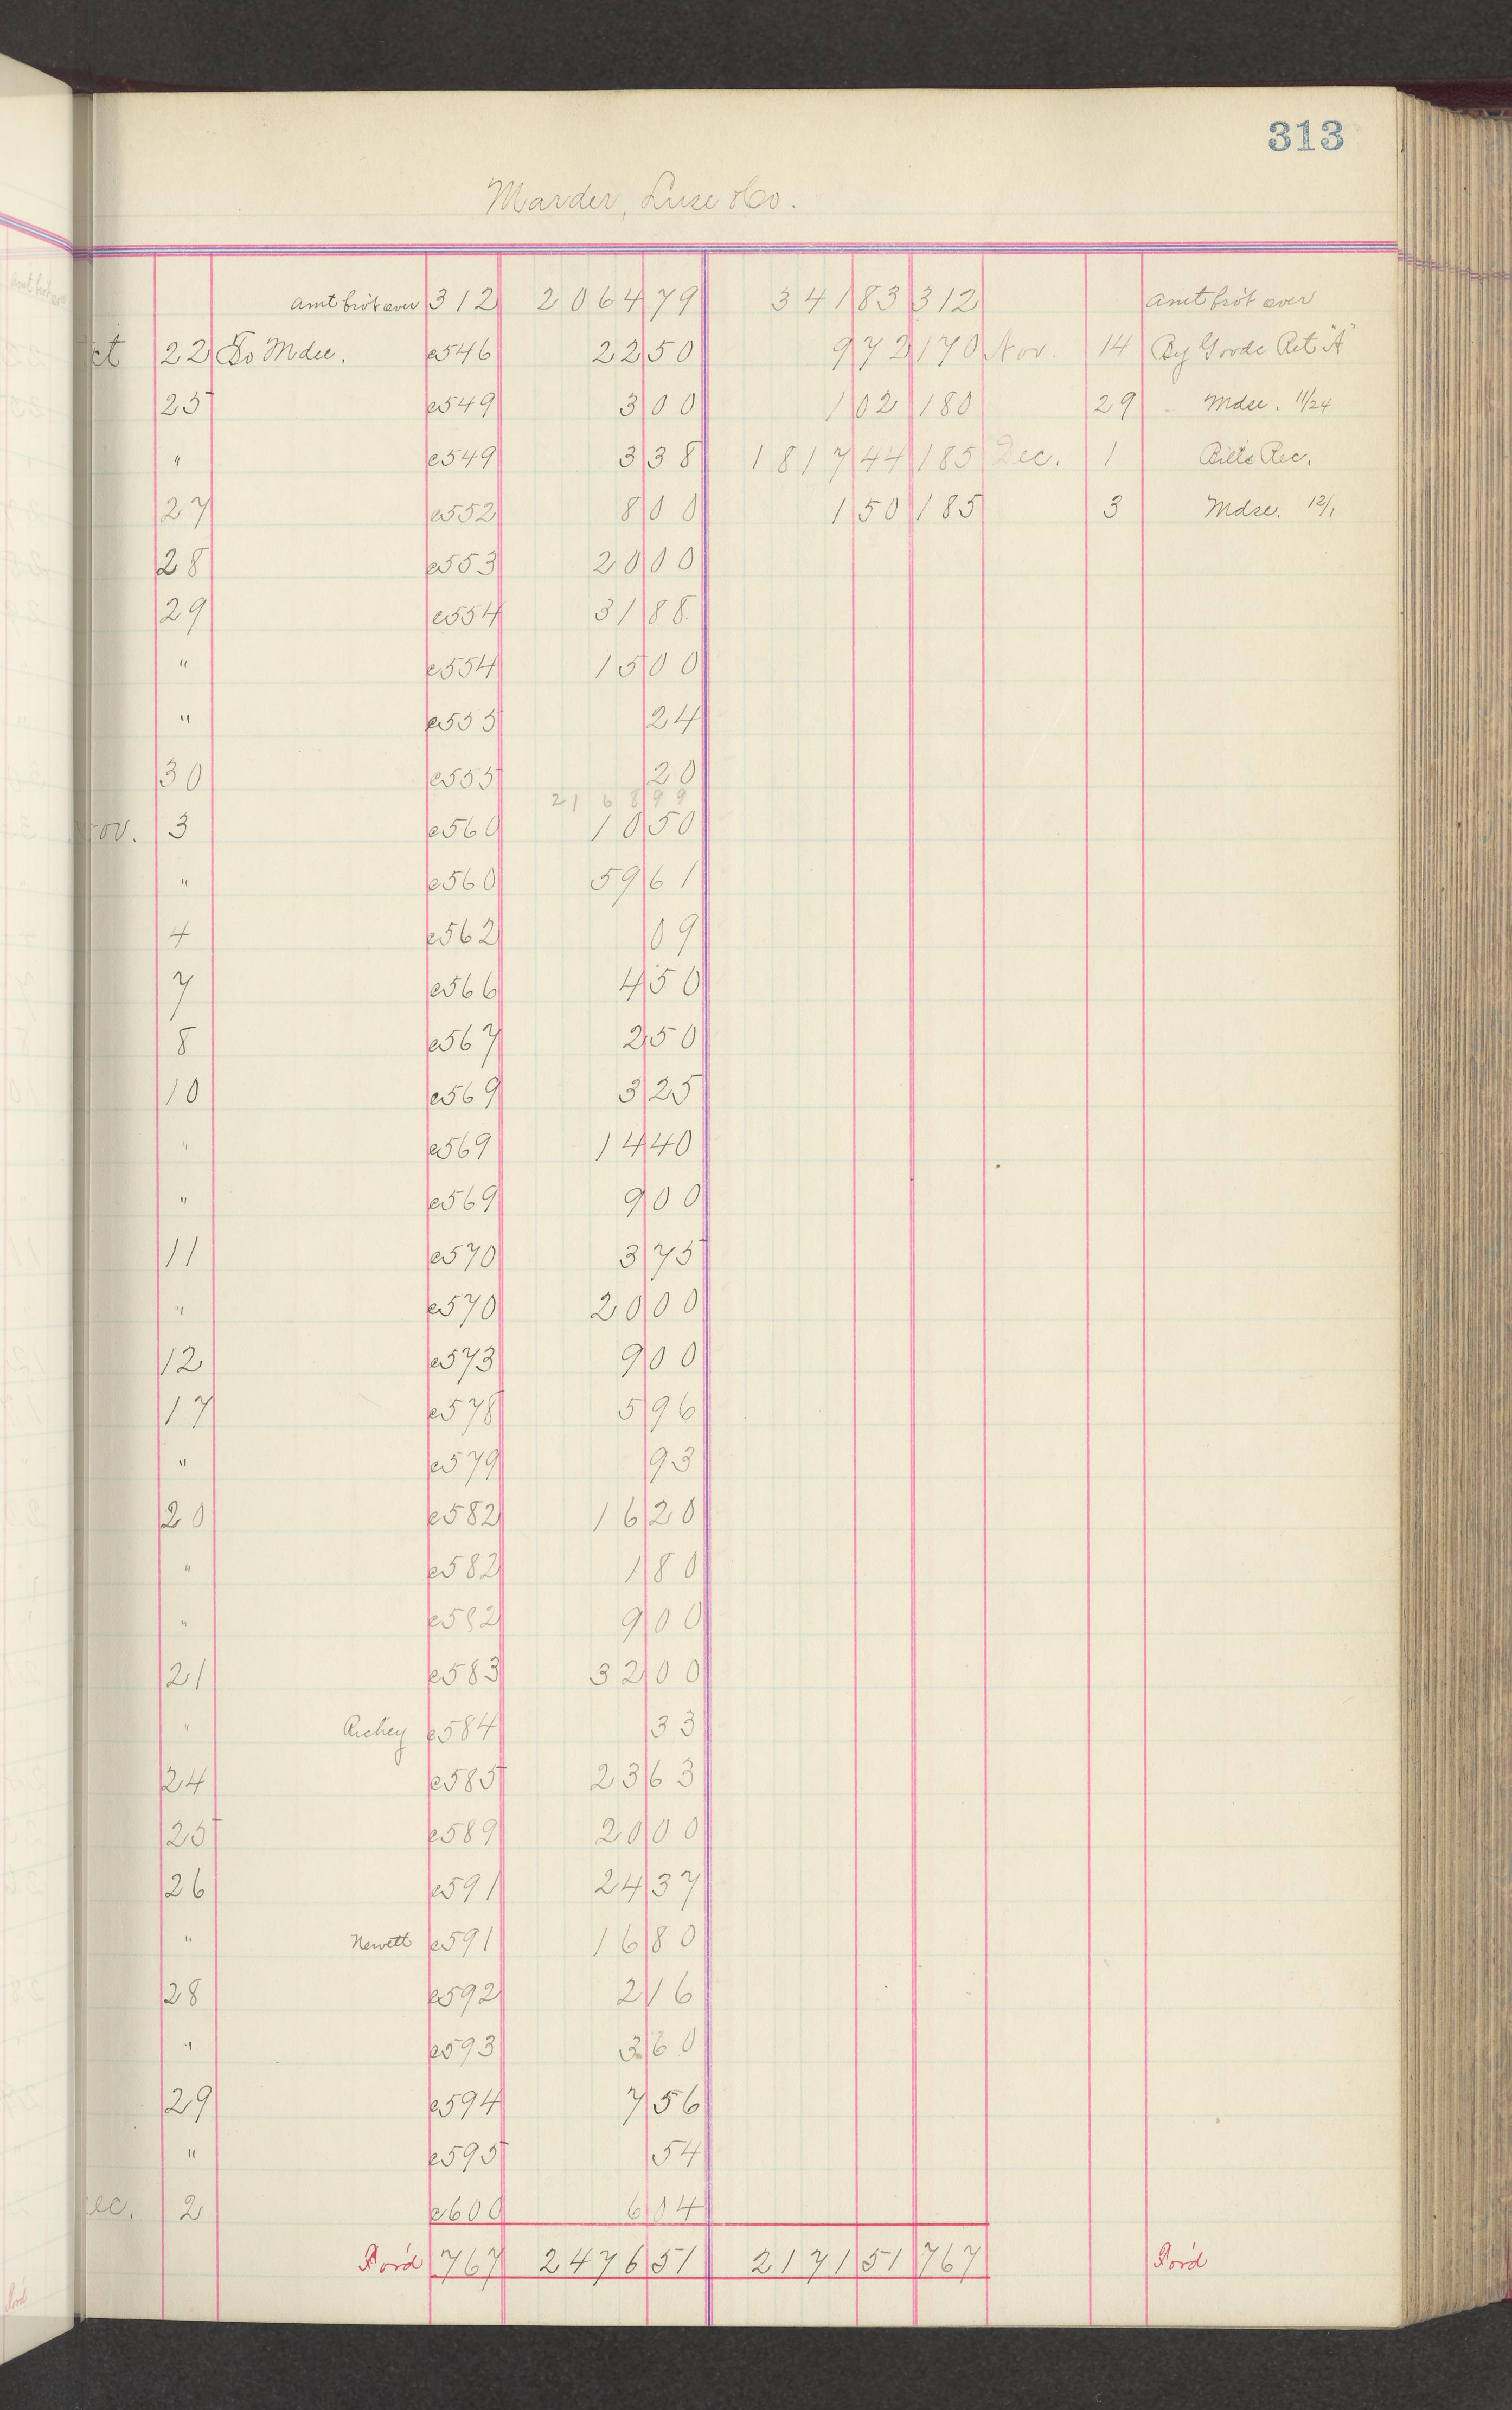 313
Marder, Luse & Co.
amt brot over 312 2064 79 341 83 312 amt brot over
ct 22 To Mdse. e546 22 50 9 72 170 Nov. 14 By Goods Ret "A"
25 e549 3 00 1 02 180 29 Mdse. 11/24
" e549 3 38 1817 44 185 Dec. 1 Bills Rec.
27 e552 8 00 1 50 185 3 Mdse. 12/1
28 e553 20 00
29 e554 31 88
" e554 15 00
" e555 24
30 e555 20
21 6 8 9 9
ov. 3 e560 10 50
" e560 59 61
4 e562 09
7 e566 4 50
8 e567 2 50
10 e569 3 25
" e569 14 40
" e569 9 00
11 e570 3 75
" e570 20 00
12 e573 9 00
17 e578 5 96
" e579 93
20 e582 16 20
" e582 1 80
" e582 9 00
21 e583 32 00
" Richey e584 33
24 e585 23 63
25 e589 20 00
26 e591 24 37
" Newett e591 16 80
28 e592 2 16
" e593 3 60
29 e594 7 56
" e595 54
ec. 2 e600 6 04
For'd 767 2476 51 2171 51 767 For'd